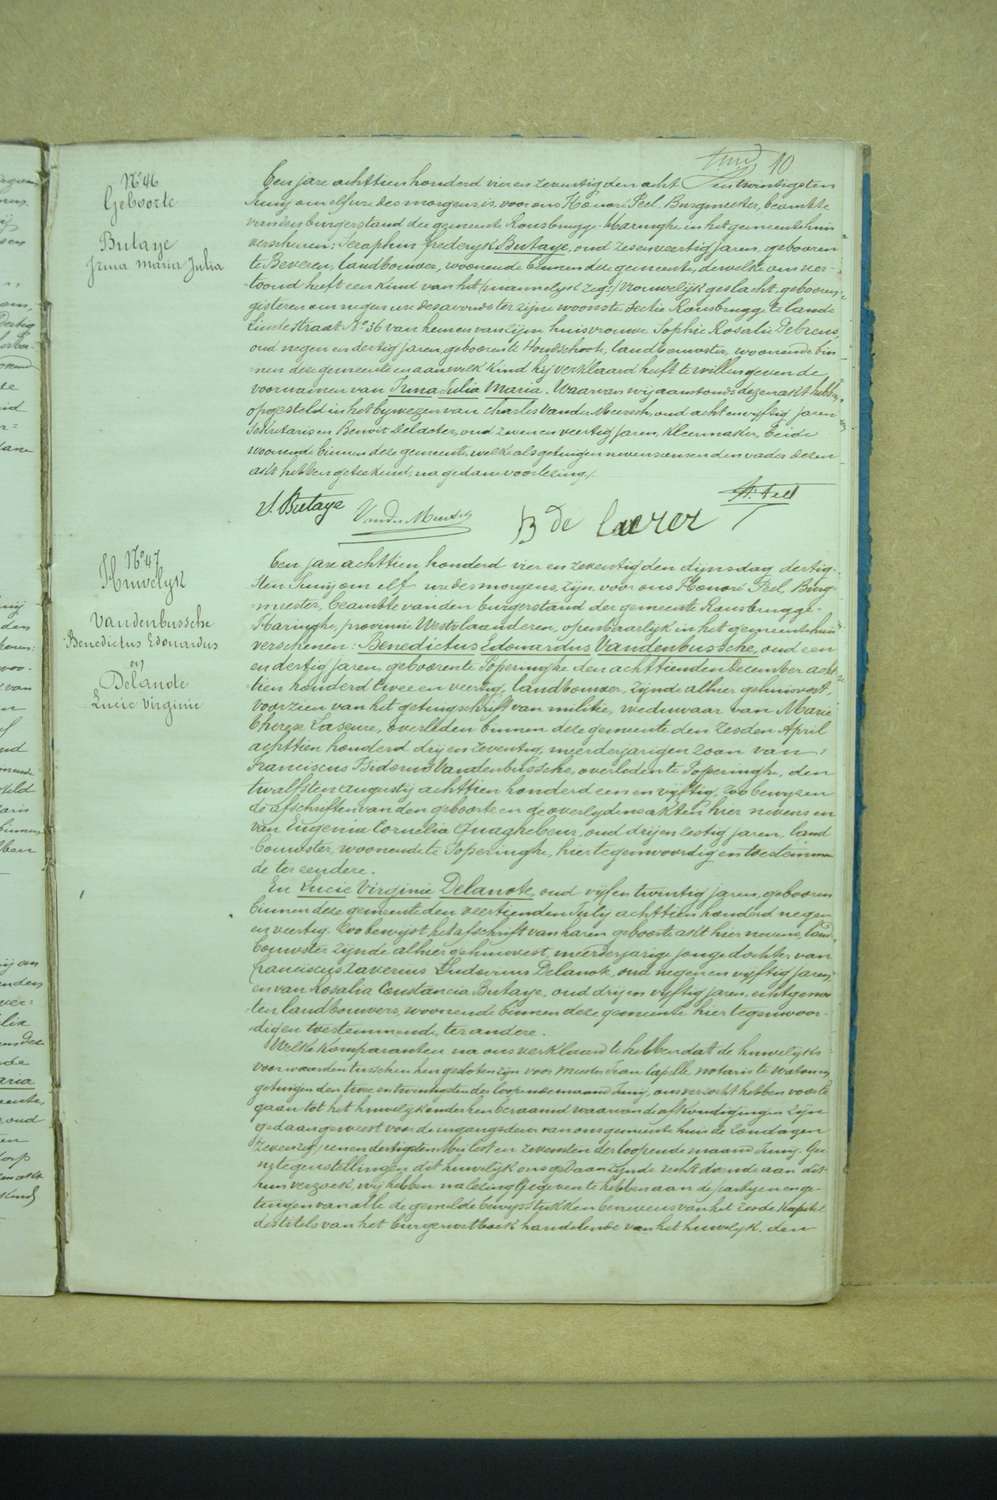 10
N° 46
Geboorte
Butaye
Irma Maria Julia
Een jare achttien honderd vier en zeventig den acht en twintigsten
Juny om elf ure des morgens is voor ons Honoré Peel Burgmeester, beambte
van den burgerstand der gemeente Rousbrugge-Haringhe in het gemeentehuis
verschenen: Seraphin Frederyk Butaye, oud zesenveertig jaren, geboren
te Beveren, landbouwer, woonende binnen deze gemeente, dewelke ons ver-
toond heeft een kind van het (mannelyk zegge) vrouwelyk geslacht, geboren
gisteren om negen ure des avonds ter zijne woonste sectie Rousbrugge te lande
straat N° 36 van hem en van zijn huisvrouwe Sophie Rosalie Debrens
oud negen en dertig jaren, geboren te Hondschoote, landbouwster, woonende bin-
nen deze gemeente en aan welk kind hij verklaard heeft te willen geven de
voornamen van Irma Julia Maria. Waarvan wij aanstonds dezen akt hebben
opgesteld in het bywezen van Charles Vander Meersch, oud acht en vyftig jaren
Sekretaris en Benoit Delaeter, oud zeven en veertig jaren, kleermaker, beide
woonende binnen deze gemeente, welk als getuigen nevens ons en den vader dezen
akt hebben geteekend, na gedane voorlezing.
S. Butaye Vander Meersch B de Laeter H. Peel
N° 47
Huwelyk
Vandenbussche
Benedictus Edouardus
en
Delanote
Lucie Virginie
Een jare achttien honderd vier en zeventig den dynsdag dertig-
sten Juny om elf ure des morgens, zijn voor ons Honoré Peel Burg-
meester, beambte van den burgerstand der gemeente Rousbrugge-
Haringhe, provincie Westvlaanderen, openbaarlyk in het gemeentehuis
verschenen: Benedictus Edouardus Vandenbussche, oud een
en dertig jaren, geboren te Poperinghe den achttienden December acht-
tien honderd twee en veertig, landbouwer, zijnde alhier gehuisvest,
voorzien van het getuigschrift van militie, weduwaar van Marie
Therese Laseure, overleden binnen deze gemeente den zesden April
achttien honderd dry en zeventig, meerderjarigen zoon van:
Franciscus Isidorus Vandenbussche, overleden te Poperinghe, den
twalfsten augusty achttien honderd een en vyftig, zoo bewyzen
de afschriften van den geboorte en de overlydensakten hier nevens en
van Eugenia Cornelia Quaghebeur, oud dry en zestig jaren, land
bouwster, woonende te Poperinghe, hier tegenwoordig en toestemmen
de ter eendere.
En Lucie Virginie Delanote, oud vyf en twintig jaren, geboren
binnen deze gemeente den veertienden July achttien honderd negen
en veertig, zoo bewyst het afschrift van haren geboorte akt hier nevens, land-
bouwster zijnde alhier gehuisvest, meerderjarige jonge dochter van
Franciscus Xaverius Ludovicus Delanote, oud negen en vyftig jaren
en van Rosalia Constancia Butaye, oud dry en vyftig jaren, echtgenoo
ten landbouwers, woonende binnen deze gemeente hier tegenwoor-
digen toestemmende, ter andere.
Welke komparanten na ons verklaard te hebben dat de huwelyks-
voorwaarden tusschen hen gesloten zijn voor meester Jean Capelle, notaris te Watou
getuigen den twee en twintigsten der loopende maand Juny, ons verzocht hebben voor te
gaan tot het huwelyk onder hen beraamd waarvan de afkondigingen zijn
gedaan geweest voor de ingangsdeur van ons gemeente huis de zondagen
zeven en dertigsten Mei lest en zevensten der loopende maand Juny. Gee
ne tegenstellingen dit huwelyk ons gedaan zijnde recht doende aan dit
hun verzoek, wij hebben na lezing gegeven te hebben aan de partyen en ge-
tuigen van alle de gemelde bewysstukken benevens van het zesde kapittel
des titels van het Burgerwetboek handelende van het huwelyk, den